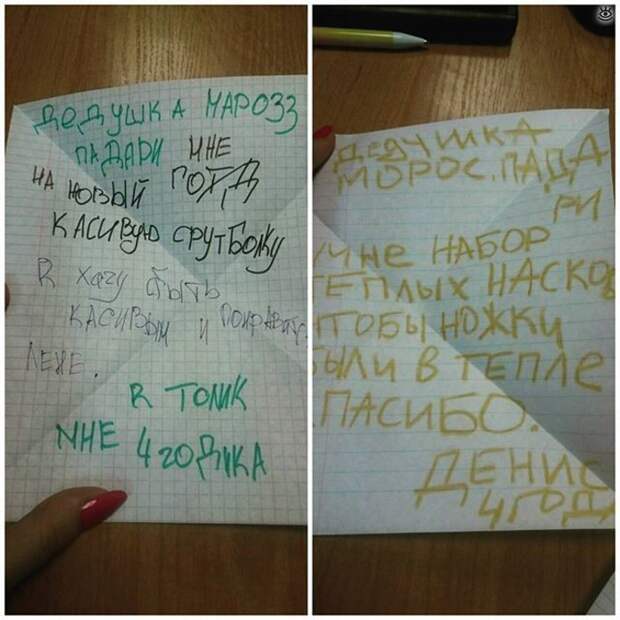 ДЕДУШКА МАРОЗЗ
ПАДАРИ МНЕ
НА НОВЫЙ ГОДД
КАСИВУЮ СРУТБОЛКУ
R ХАЧУ БЫТЬ
КАСИВЫМ И ПОНРАВИТС
ЛЕНЕ.
R ТОЛИК
МНЕ 4 ГОДИКА
ДЕДУШКА
МОРОС. ПАДА
РИ
МНЕ НАБОР
ТЕПЛЫХ НАСКОВ
ЧТОБЫ НОЖКИ
БЫЛИ В ТЕПЛЕ
СПАСИБО.
ДЕНИС
4 ГОДА